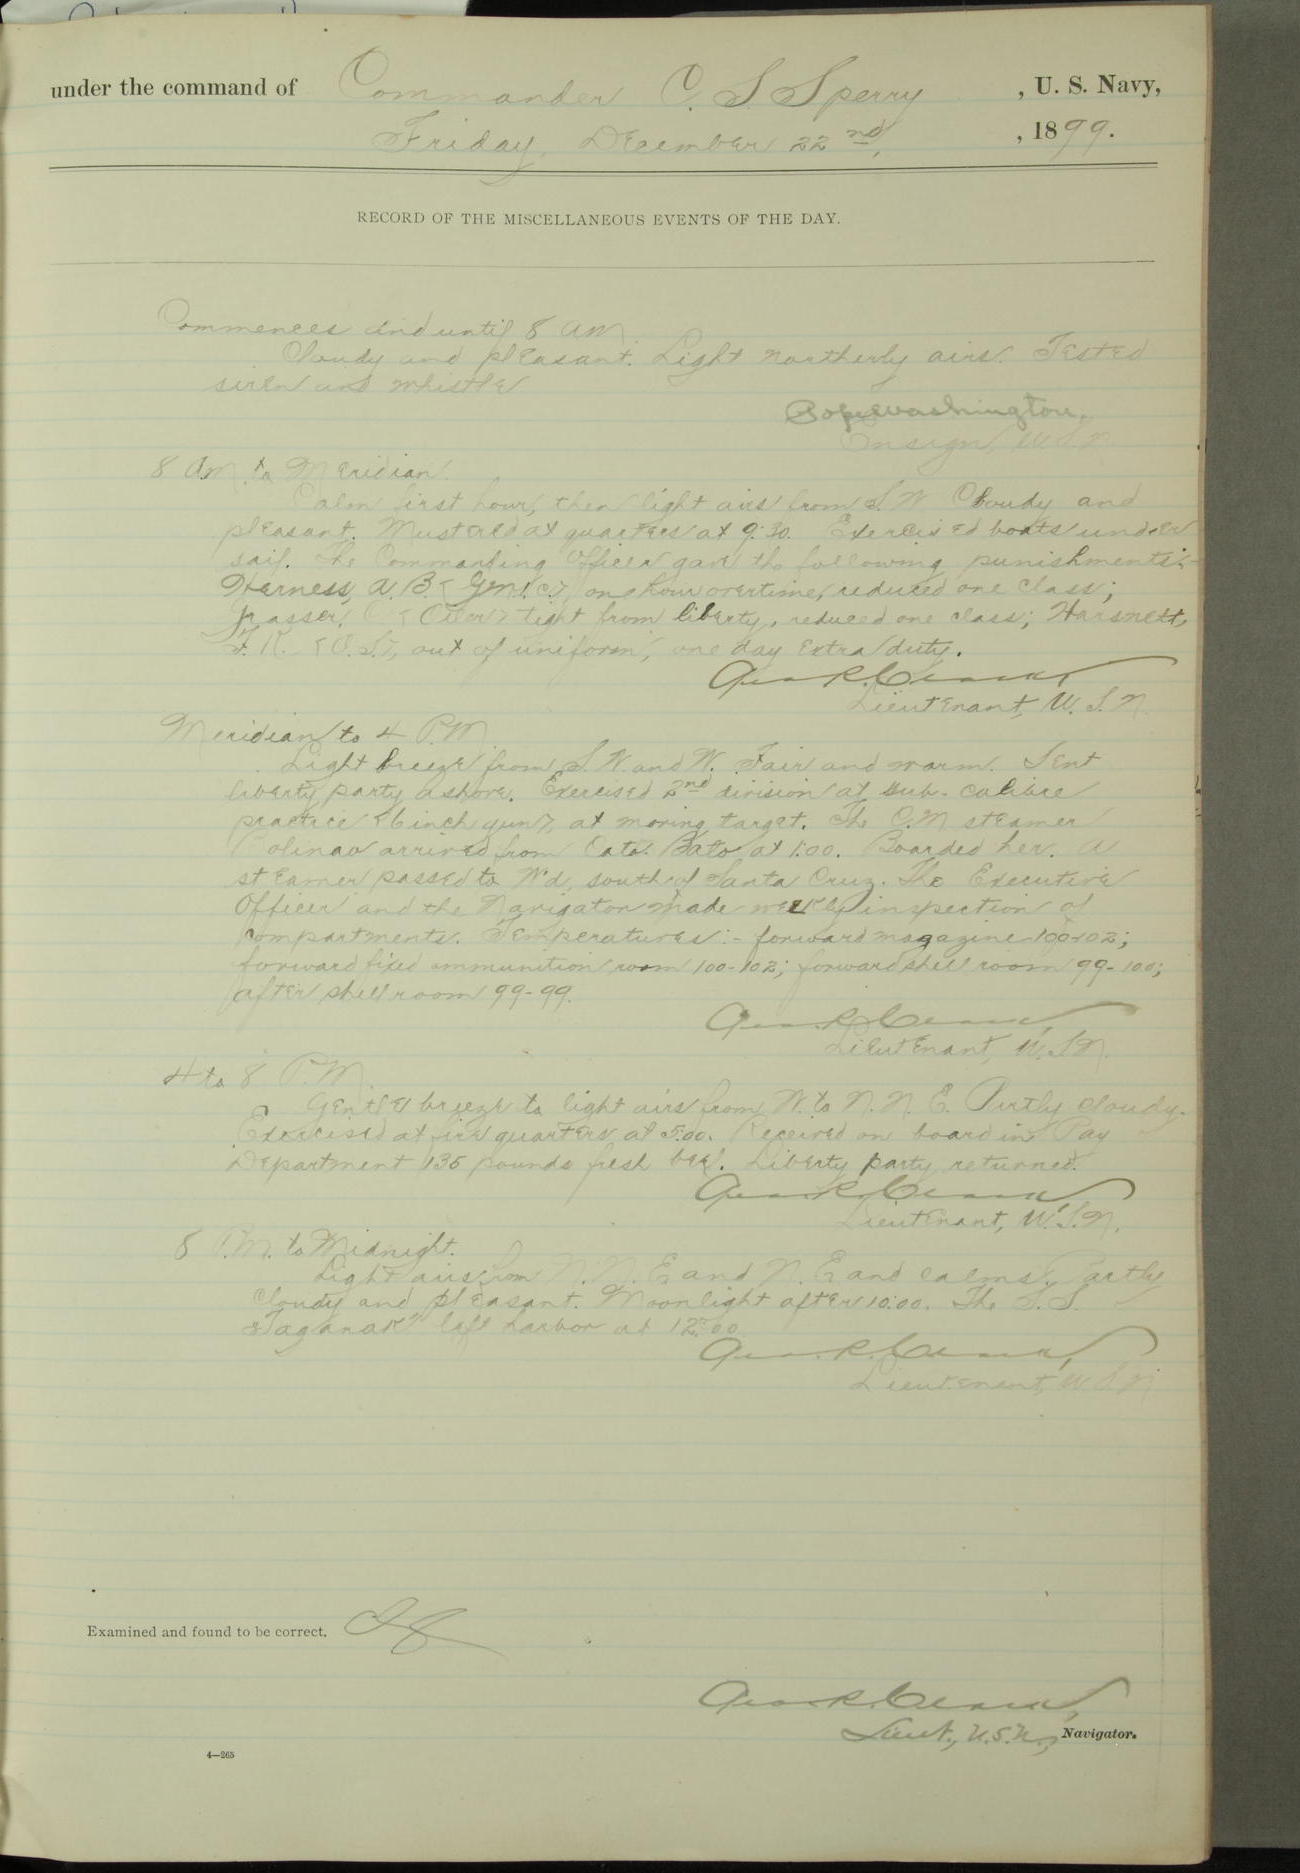 under the command of Commander C. S. Sperry, U. S. Navy,
Friday, December 22nd, , 1899.
RECORD OF THE MISCELLANEOUS EVENTS OF THE DAY.
Commences and until 8 AM
Cloudy and pleasant. Light northerly airs. Tested
siren and whistle
Pope Washington,
Ensign, U.S.N.
8 AM. to Meridian.
Calm first hour, then light airs from S.W. Cloudy and
pleasant. Mustered at quarters at 9:30. Exercised boats under
sail. The Commanding Officer gave the following punishments:-
Harness, A. B. one hour overtime, reduced one class;
(Oiler) tight from liberty, reduced one class; Harsnett,
F. R. (O.S.), out of uniform, one day extra duty.
Geo. R. Clark,
Lieutenant, U. S. N.
Meridian to 4 P.M.
Light breeze from S. W. and W. Fair and warm. Sent
liberty party ashore. Exercised 2nd division at sub-calibre
practice (6 inch gun), at moving target. The steamer
Bolinao arrived from Bato at 1:00. Boarded her. A
steamer passed to W'd, south of Santa Cruz. The Executive
Officer and the Navigator made weekly inspection of
compartments. Temperatures:- forward magazine 100-102;
forward fixed ammunition room 100-102; forward shell room 99-100;
after shell room 99-99.
Geo. R. Clark,
Lieutenant, U.S.N.
4 to 8 P.M.
Gentle breeze to light airs from W. to N. N. E. Partly cloudy.
Exercised at fire quarters at 5:00. Received on board in Pay
Department 135 pounds fresh beef. Liberty party returned.
Geo. R. Clark
Lieutenant, U.S.N.
8 P.M. to Midnight.
Light airs from N. N. E. and N. E. and calms. Partly
cloudy and pleasant. Moonlight after 10:00. The S.S.
"Taganak" left harbor at 12:00
Geo. R. Clark,
Lieutenant, U.S.N.
Examined and found to be correct.
Geo. R. Clark,
Lieut., U.S.N., Navigator.
4—265